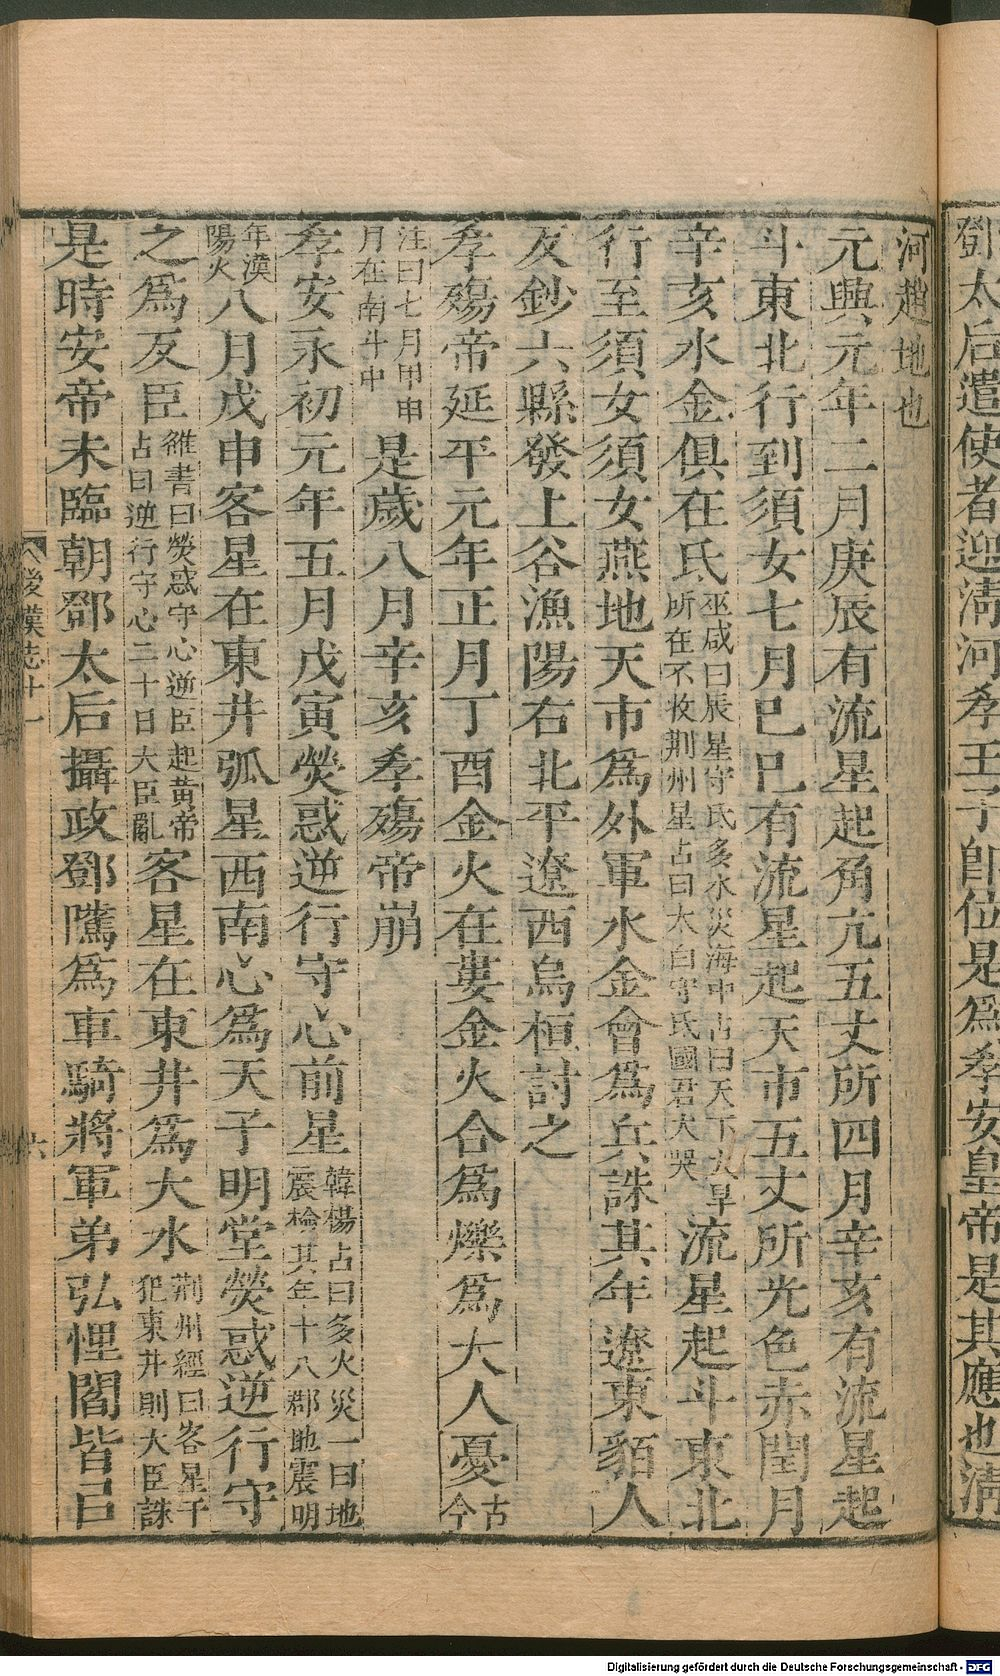 鄧太后遣使者迎清河孝王子即位是爲孝安皇帝是其應也清
河趙地也
元興元年二月庚辰有流星起角亢五丈所四月辛亥有流星起
斗東北行到須女七月巳巳有流星起天市五丈所光色赤閏月
辛亥水金俱在氐巫咸曰辰星守氐多水災海中占曰天下大旱所在不收荆州星占曰太白守氐國君大哭流星起斗東北
行至須女須女燕地天市爲外軍水金會爲兵誅其年遼東貊人
反鈔六縣發上谷漁陽右北平遼西烏桓討之
孝殤帝延平元年正月丁酉金火在婁金火合爲爍爲大人憂古今
注曰七月甲申月在南斗中是歲八月辛亥孝殤帝崩
孝安永初元年五月戊寅熒惑逆行守心前星韓楊占曰多火災一曰地震檢其年十八郡地震明
年漢陽火八月戊申客星在東井弧星西南心爲天子明堂熒惑逆行守
之爲反臣雒書曰熒惑守心逆臣起黃帝占曰逆行守心二十日大臣亂客星在東井爲大水荆州經曰客星干犯東井則大臣誅
是時安帝未臨朝鄧太后攝政鄧騭爲車騎將軍弟弘悝閶皆曰
後漢志十一
六
Digitalisierung gefördert durch die Deutsche Forschungsgemeinschaft - DFG